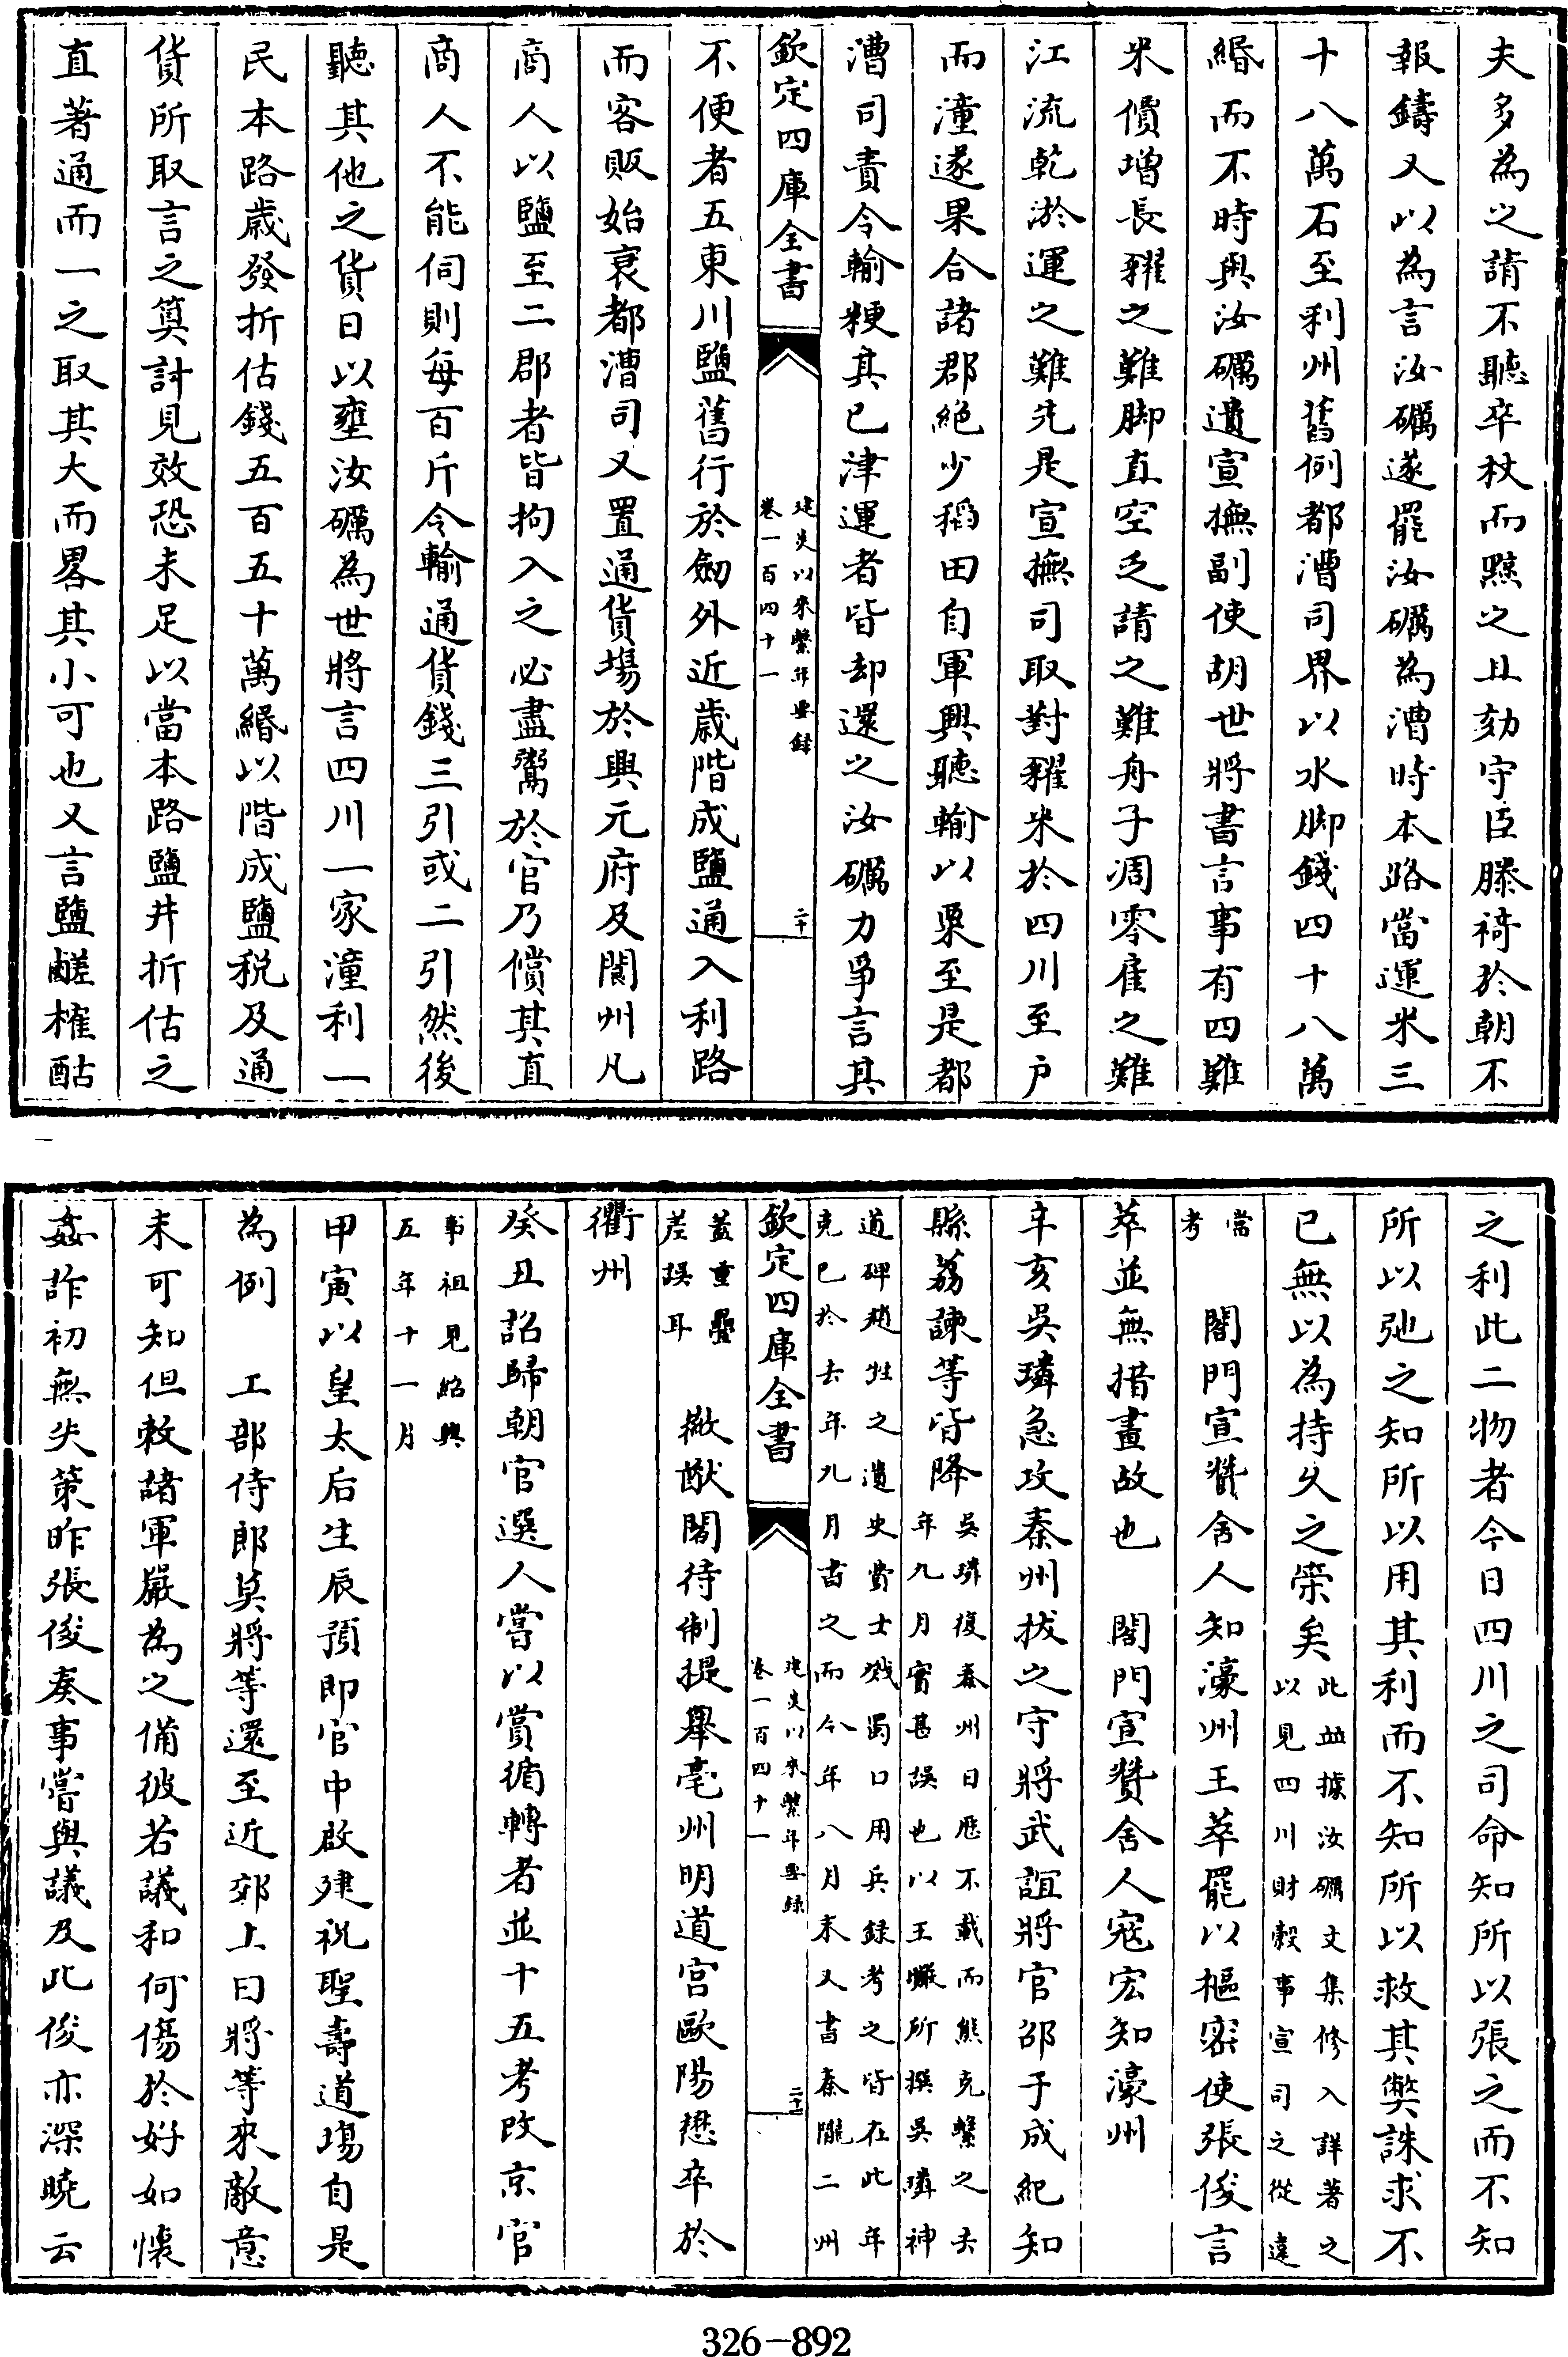 夫多為之請不聽卒杖而黥之且劾守臣滕祹於朝不
報鑄又以為言汝礪遂罷汝礪為漕時本路當運米三
十八萬石至利州舊例都漕司界以水脚錢四十八萬
緡而不時與汝礪遺宣撫副使胡世將書言事有四難
米價增長糴之難脚直空乏請之難舟子凋零雇之難
江流乾淤運之難先是宣撫司取對糴米於四川至戶
而潼遂果合諸郡絶少稻田自軍興聽輸以粟至是都
漕司責令輸粳其已津運者皆却還之汝礪力爭言其
欽定四庫全書
建炎以來繫年要録
卷一百四十一
二十
不便者五東川鹽舊行於劒外近歲階成鹽通入利路
而客販始衰都漕司又置通貨場於興元府及閬州凡
商人以鹽至二郡者皆拘入之必盡鬻於官乃償其直
商人不能伺則每百斤令輸通貨錢三引或二引然後
聽其他之貨日以壅汝礪為世將言四川一家潼利一
民本路歲發折估錢五百五十萬緡以階成鹽税及通
貨所取言之算計見效恐未足以當本路鹽井折估之
直著通而一之取其大而畧其小可也又言鹽鹺榷酤
之利此二物者今日四川之司命知所以張之而不知
所以弛之知所以用其利而不知所以救其獘誅求不
已無以為持久之榮矣
此並據汝礪文集修入詳著之
以見四川財穀事宣司之從違
當
考
閤門宣贊舍人知濠州王萃罷以樞密使張俊言
萃並無措畫故也 閤門宣贊舍人寇宏知濠州
辛亥吳璘急攻秦州拔之守將武誼將官邵于成紀知
縣荔諫等皆降
吳璘復秦州日厯不載而熊克繫之去
年九月實甚誤也以王曮所撰吳璘神
道碑趙甡之遺史費士戣蜀口用兵録考之皆在此年
克已於去年九月書之而今年八月末又書秦隴二州
欽定四庫全書
建炎以來繫年要録
卷一百四十一
二十一
蓋重疊
差誤耳
徽猷閣待制提舉亳州明道宫歐陽懋卒於
衢州
癸丑詔歸朝官選人嘗以賞循轉者並十五考改京官
事祖見紹興
五年十一月
甲寅以皇太后生辰預即宫中啟建祝聖壽道塲自是
為例 工部侍郎莫將等還至近郊上曰將等來敵意
未可知但敕諸軍嚴為之備彼若議和何傷於好如懷
姦詐初無失策昨張俊奏事嘗與議及此俊亦深曉云
326-892